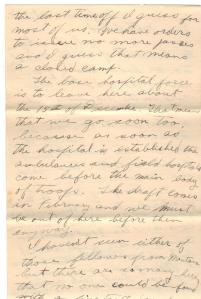 the last time off I guess for
most of us. We have orders
to issue no more passes
and I guess that means
a closed camp.
The base hospital force
is to leave here about
the 15th of December. That means
that we go soon too,
because as soon as
the hospital is established the
ambulances and field hospitals
come before the main body
of troops. The draft comes
in February and we must
be out of here before then
anyway.
I haven't seen either of
those fellows from
but there are so many here
that no one could be found
with a